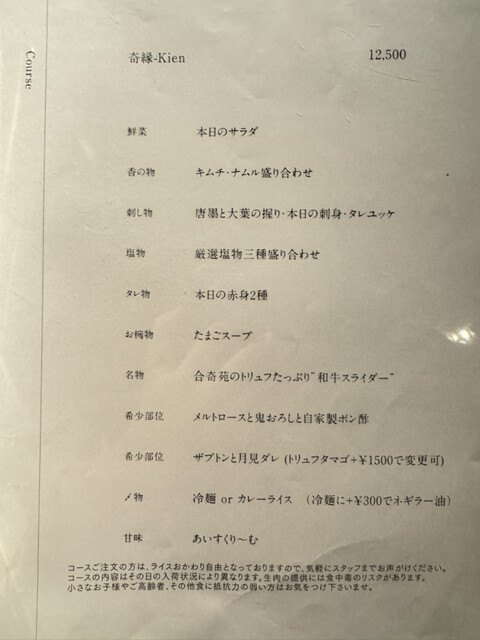 Course
奇縁-Kien 12,500
鮮菜 本日のサラダ
香の物 キムチ・ナムル盛り合わせ
刺し物 唐墨と大葉の握り・本日の刺身・タレユッケ
塩物 厳選塩物三種盛り合わせ
タレ物 本日の赤身2種
お椀物 たまごスープ
名物 合奇苑のトリュフたっぷり"和牛スライダー"
希少部位 メルトロースと鬼おろしと自家製ポン酢
希少部位 ザブトンと月見ダレ (トリュフタマゴ+¥1500で変更可)
〆物 冷麺 or カレーライス (冷麺に+¥300でネギラー油)
甘味 あいすくり〜む
コースご注文の方は、ライスおかわり自由となっておりますので、気軽にスタッフまでお声がけください。
コースの内容はその日の入荷状況により異なります。生肉の提供には食中毒のリスクがあります。
小さなお子様やご高齢者、その他食に抵抗力の弱い方はお気をつけ下さいませ。